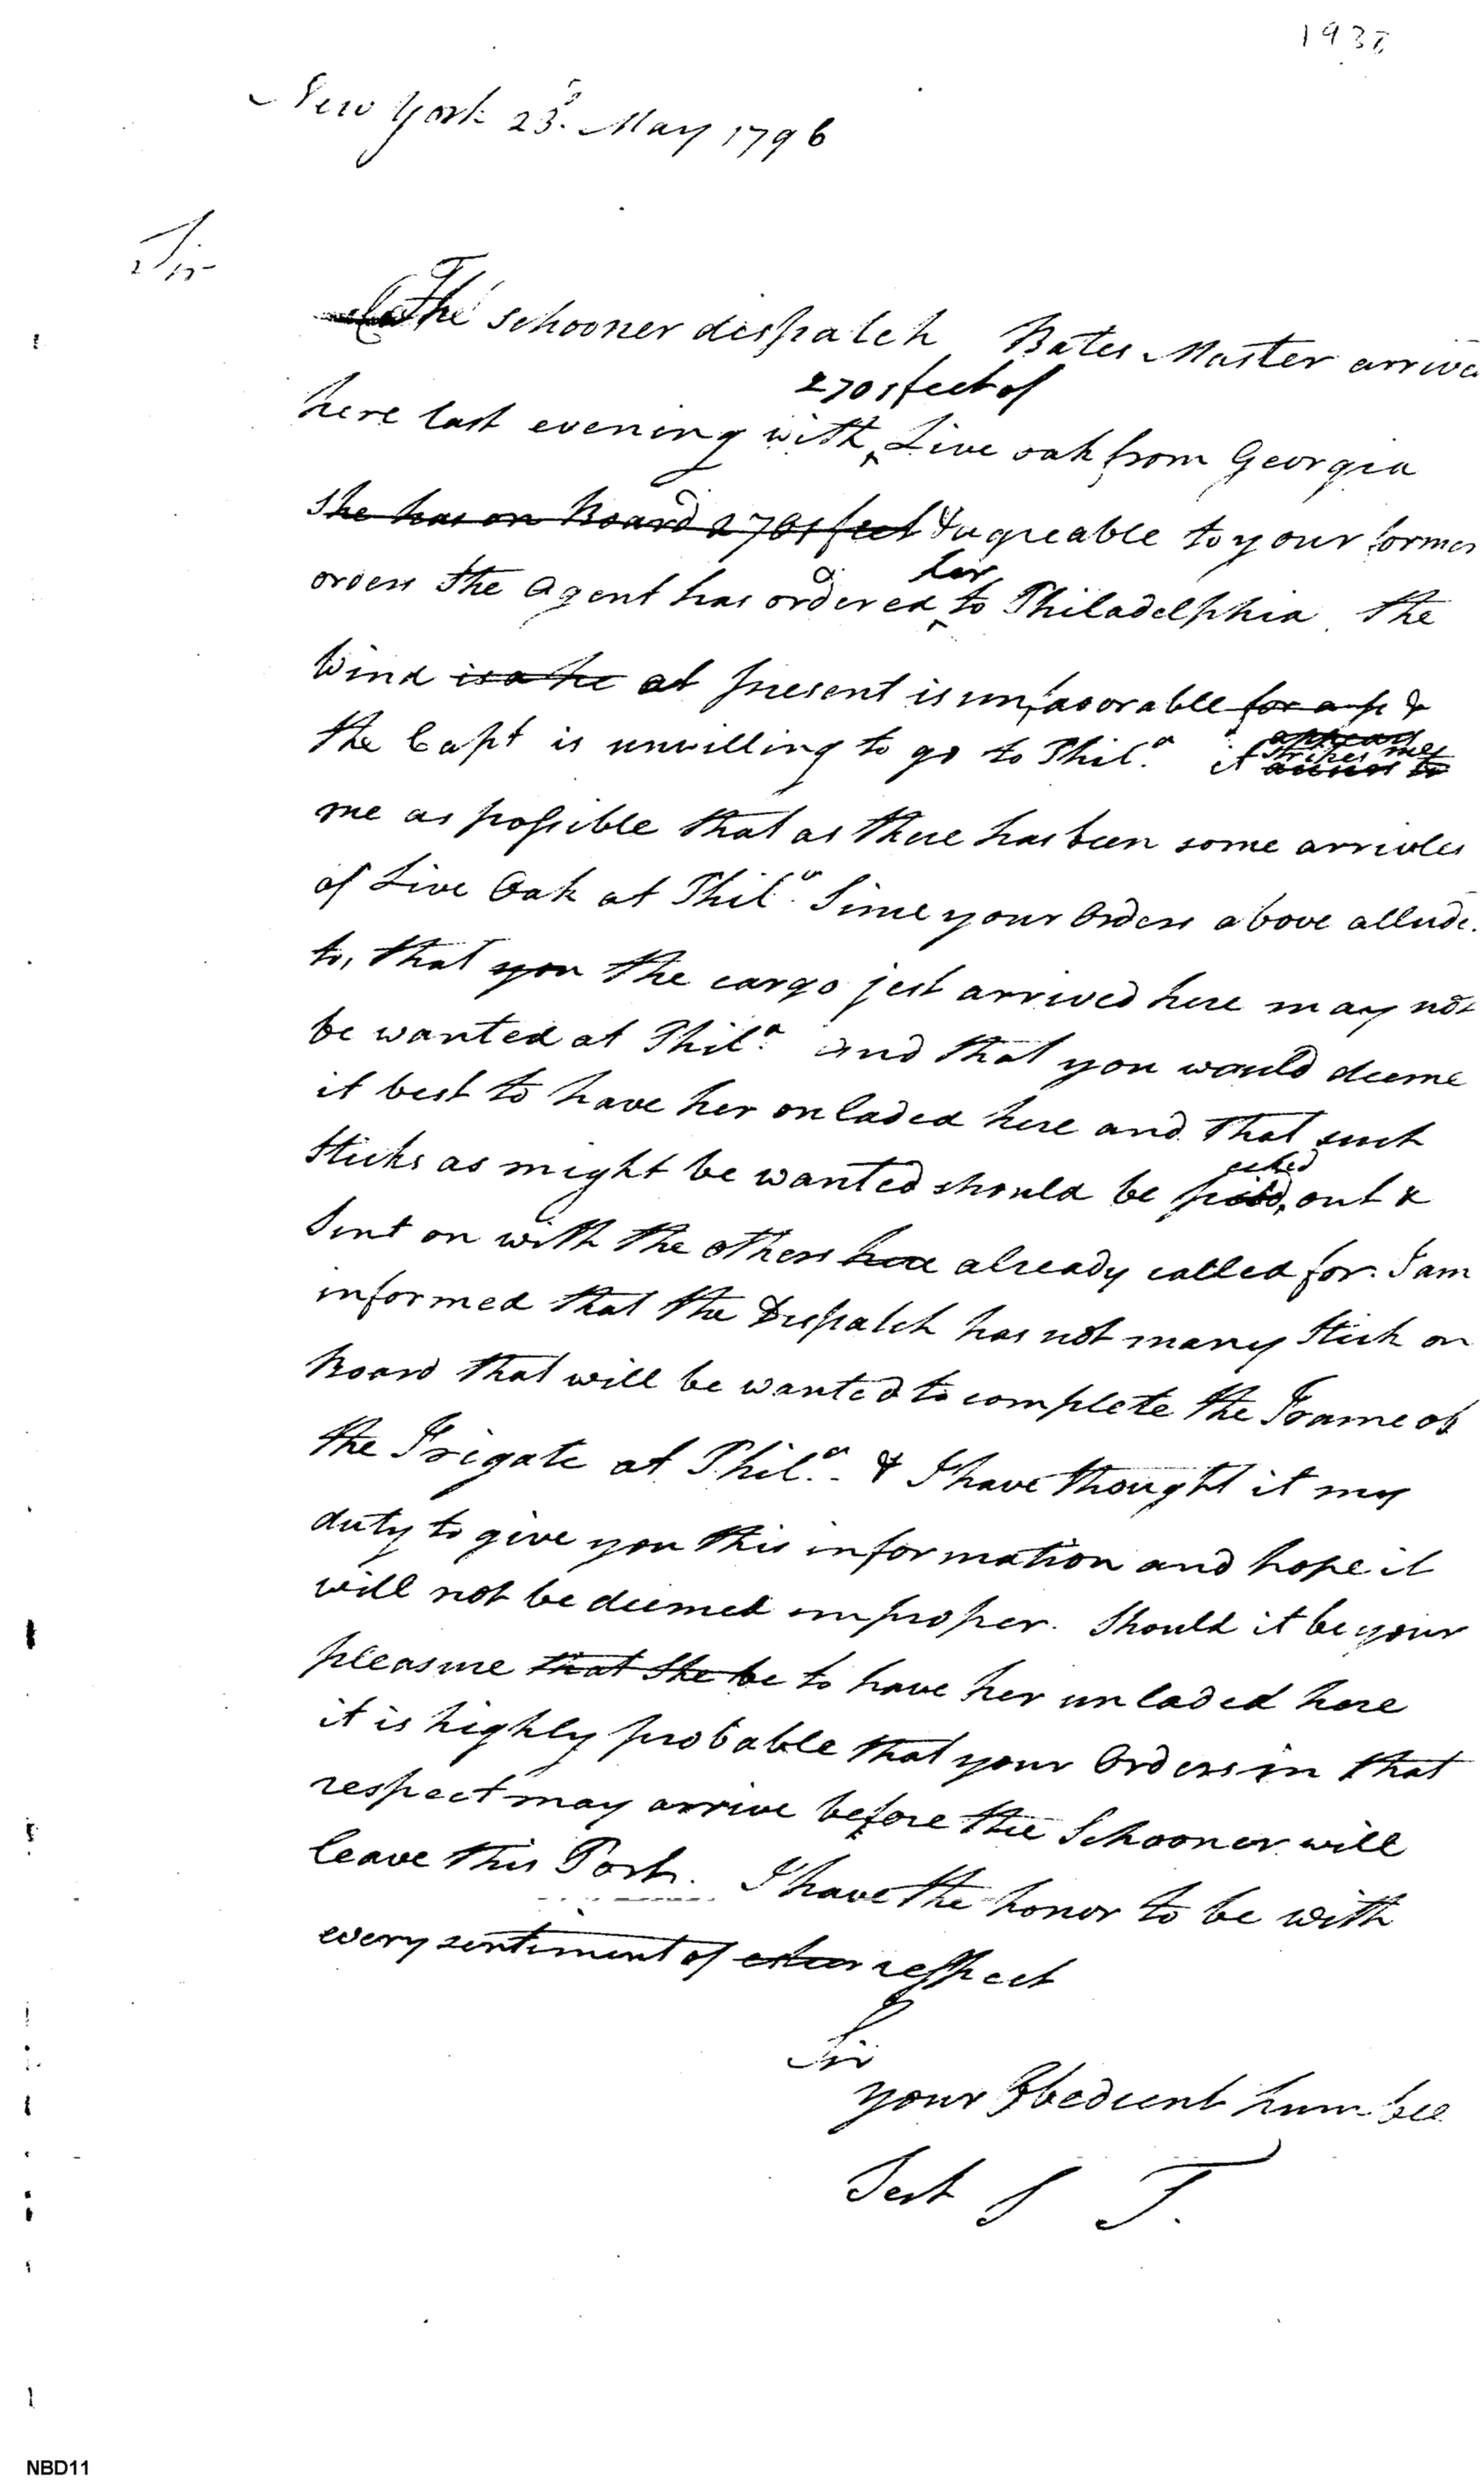 193
New York 23d May 1796
Sir
The schooner dispatch Bates Master arrive
2701 feet of
here last evening with Live oak from Georgia
She has on Board 2701 feet & agreable to your former
her
orders the Agent has ordered to Philadelphia. the
Wind at present is unfavorable for a p &
appears
strikes me
the Capt is unwilling to go to Phila. it to
me as possible that as there has been some arrivles
of Live Oak at Phila. Since your Orders above allude
to, that you the cargo jest arrived here may not
be wanted at Phila. and that you would deeme
it best to have her onladed here and that such
Sticks as might be wanted should be out &
Sent on with the others here already called for. I am
informed that the Dispatch has not many Stick on
Board that will be wanted to complete the Frame of
the Frigate at Phila. & I have thought it my
duty to give you this information and hope it
will not be deemed improper. Should it be your
pleasure that She be to have her unladed here
it is highly probable that your Orders in that
respect may arrive before the Schooner will
leave this Port. I have the honor to be with
every sentiment of respect
Sir
your Obedient humble
Sert J T.
NBD11